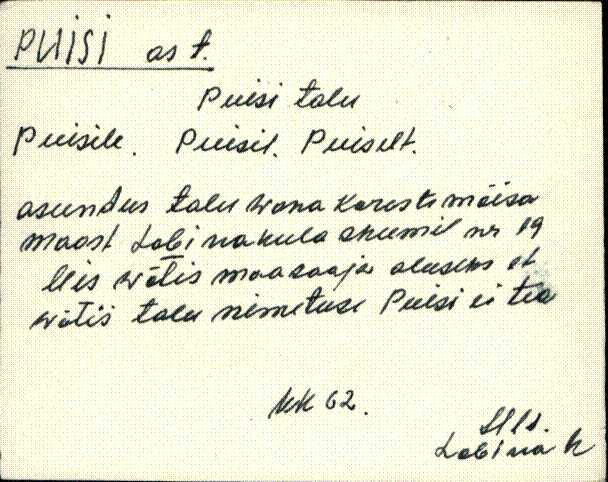 PUISI as t.
Puisi talu
Puisile. Puisil. Puiselt.
asundus talu wana Kareste mõisa
maast Lobi nakula skeemil nr 19
Mis wõtis maasaaja aluseks et
wõtis talu nimetuse Puisi ei tea
KK 62.
Lobi na k